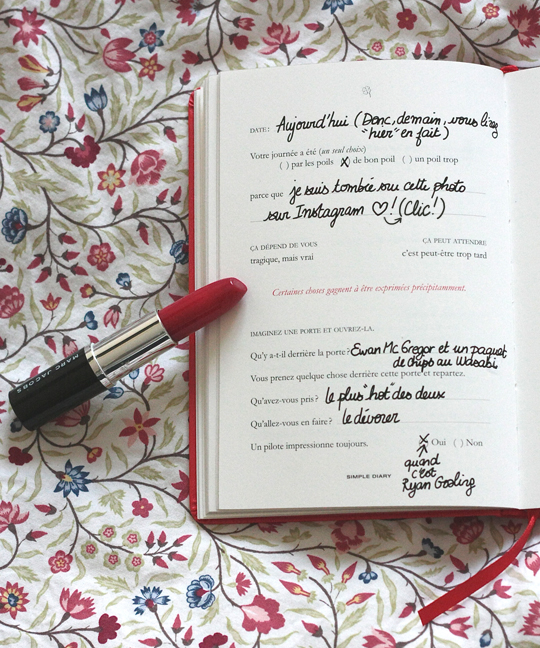 DATE: Aujourd'hui (Donc, demain, vous lirez
"hier" en fait)
Votre journée a été (un seul choix)
( ) par les poils (X) de bon poil ( ) un poil trop
parce que je suis tombée sur cette photo
sur Instagram ♡! (Clic!)
ÇA DÉPEND DE VOUS ÇA PEUT ATTENDRE
tragique, mais vrai c'est peut-être trop tard
Certaines choses gagnent à être exprimées précipitamment.
IMAGINEZ UNE PORTE ET OUVREZ-LA.
Qu'y a-t-il derrière la porte? Ewan Mc Gregor et un paquet
de chips au Wasabi
Vous prenez quelque chose derrière cette porte et repartez.
Qu'avez-vous pris? le plus "hot" des deux
Qu'allez-vous en faire? le dévorer
Un pilote impressionne toujours. (X) Oui ( ) Non
quand
c'est
Ryan Gosling
SIMPLE DIARY
MARC JACOBS